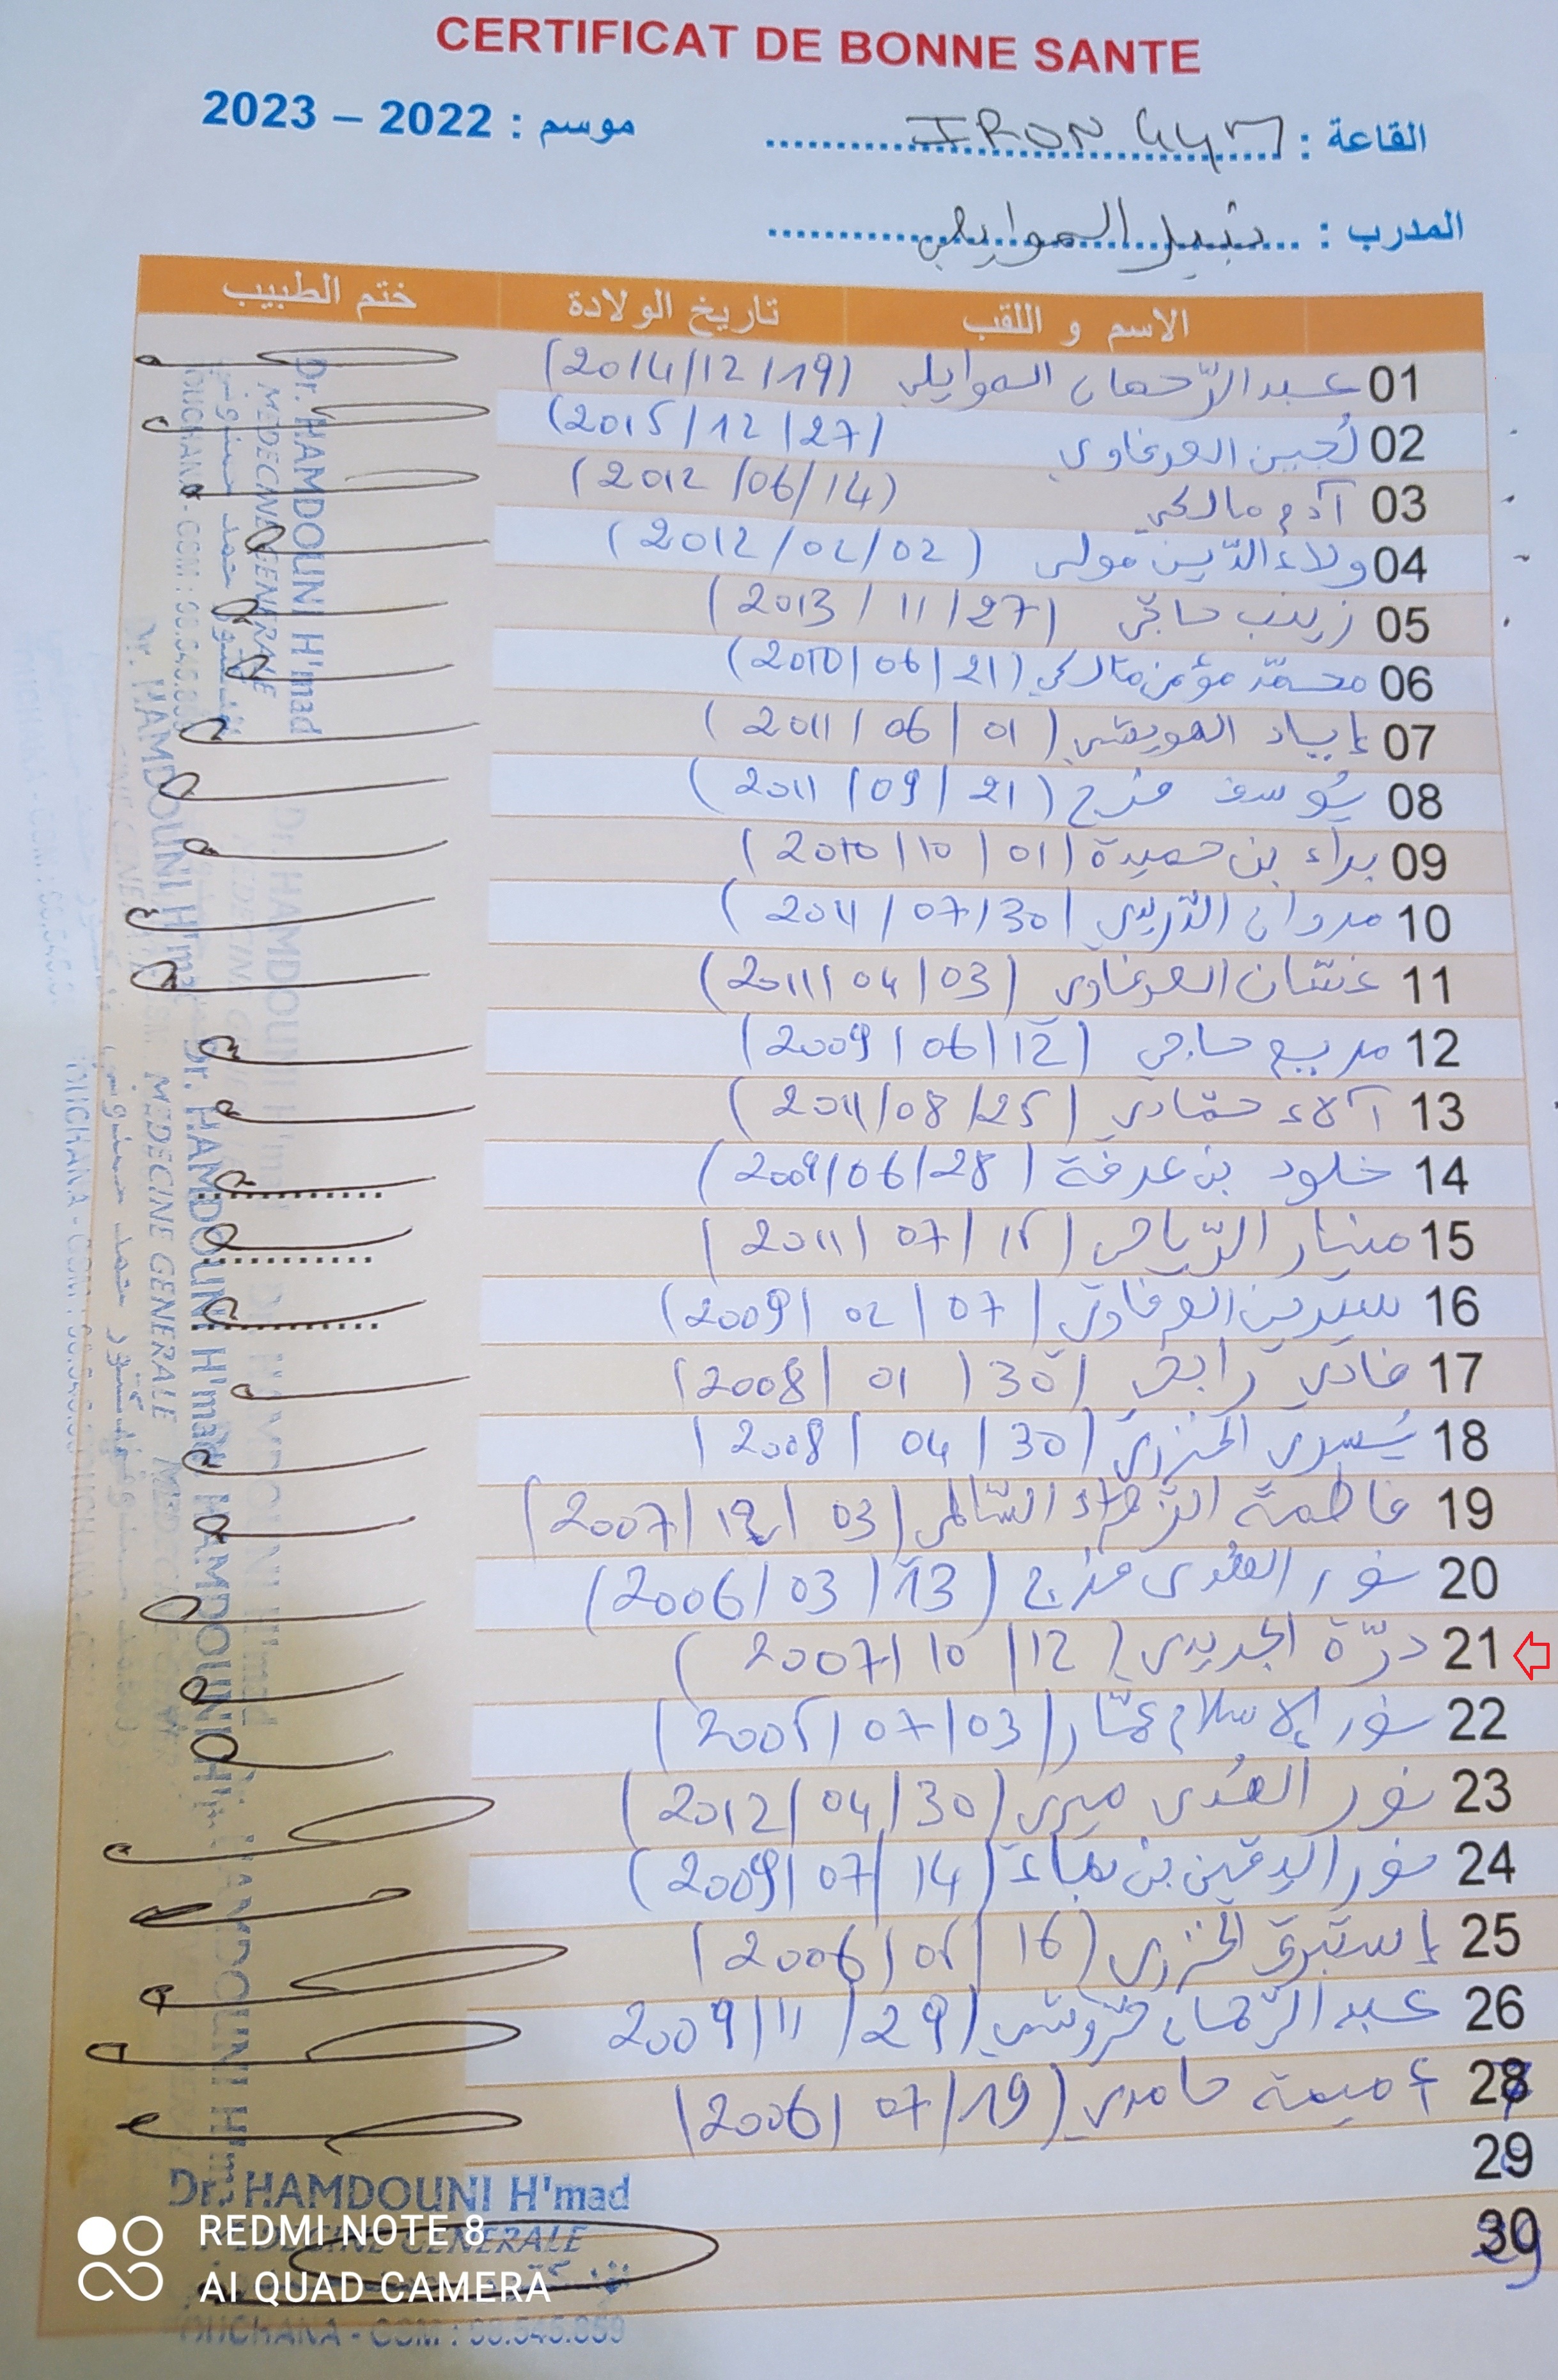 CERTIFICAT DE BONNE SANTE
القاعة : IRON GYM موسم : 2022 – 2023
المدرب : نبيل الموايلي
الاسم و اللقب تاريخ الولادة ختم الطبيب
01 عبد الرّحمان الموايلي (2014/12/19)
02 لُجين العرفاوي (2015/12/27)
03 آدم مالكي (2012/06/14)
04 ولاء الدّين مولى (2012/02/02)
05 زينب حاجّي (2013/11/27)
06 محمّد مؤمن مالكي (2010/06/21)
07 إياد الهويشي (2011/06/01)
08 يُوسف فرج (2011/09/21)
09 براء بن حميدة (2010/10/01)
10 مروان الدّريدي (2011/07/30)
11 غسّان العرفاوي (2011/04/03)
12 مريم حاجي (2009/06/12)
13 آلاء حمّادي (2011/08/25)
14 خلود بن عرفة (2009/06/28)
15 منار الرّياحي (2011/07/15)
16 سيرين العرفاوي (2009/02/07)
17 فادي رابحي (2008/01/30)
18 يُسرى الخزري (2008/04/30)
19 فاطمة الزّهراء السّالمي (2007/12/03)
20 نور الهُدى فرج (2006/03/13)
21 درّة الجديدي (2007/10/12)
22 نور الإسلام عمّار (2005/07/03)
23 نور الهُدى ميري (2012/04/30)
24 نور اليقين بن (2009/07/14)
25 إستبرق الخزري (2006/05/16)
26 عبد الرّحمان (2009/11/29
28 أميمة حامدي (2006/07/19)
29
30
Dr. HAMDOUNI H'mad
MEDECINE GENERALE
OUCHANA - GSM : 98.545.859
REDMI NOTE 8
AI QUAD CAMERA